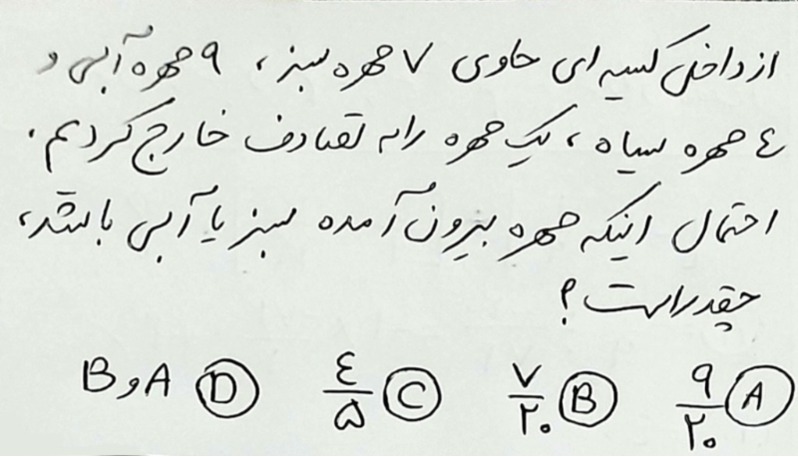 از داخل کیسه ای حاوی ۷ مهره سبز، ۹ مهره آبی و
٤ مهره سیاه، یک مهره را به تصادف خارج کردیم.
احتمال اینکه مهره بیرون آمده سبز یا آبی باشد،
چقدر است؟
A ۹/۲۰ B ۷/۲۰ C ٤/۵ D A و B